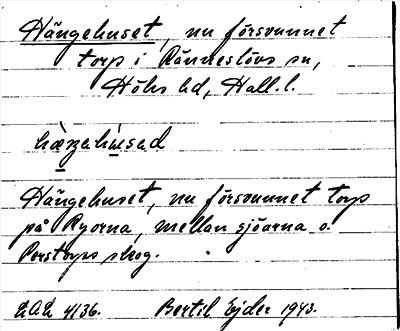 Hängehuset, nu försvunnet
torp i Ränneslövs sn,
Höks hd, Hall. l.
hàŋəhùsəd
Hängehuset, nu försvunnet torp
på Ryorna, mellan sjöarna o.
Perstorps skog.
LAL 4136. Bertil Ejder 1943.